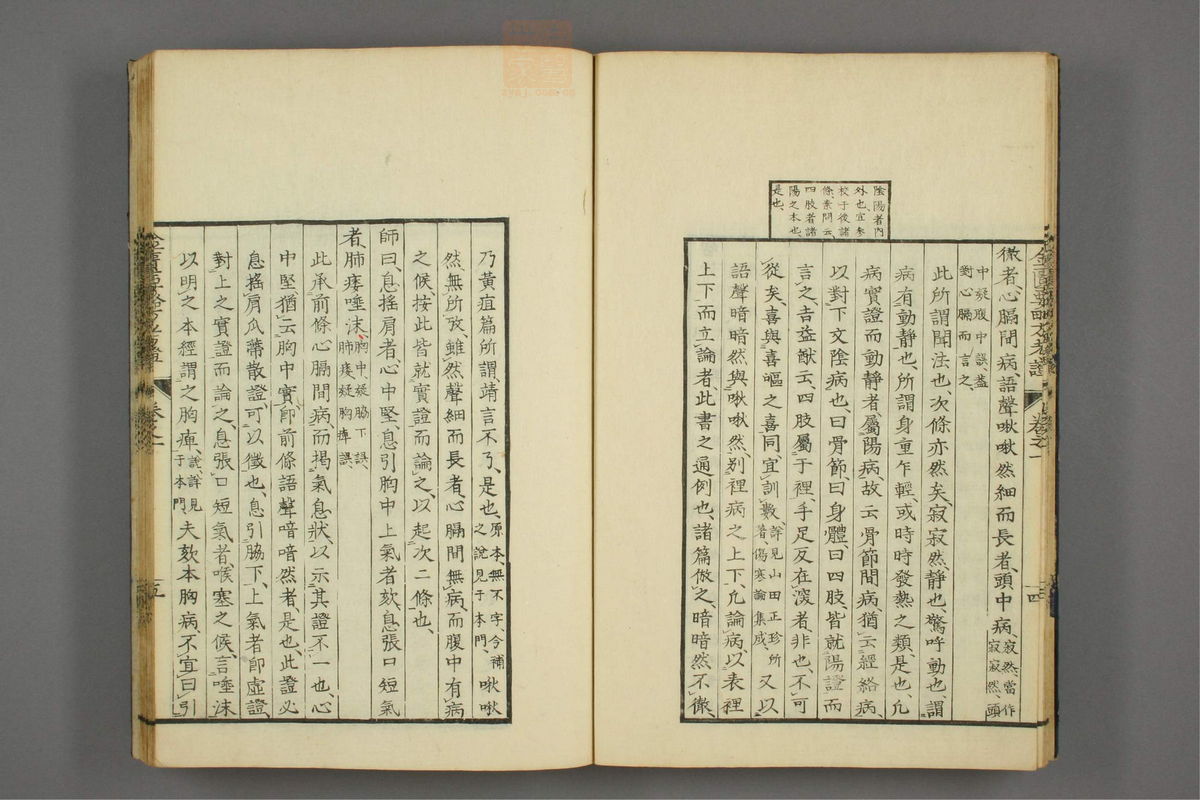 陰陽者内
外也、宜參
校于後諸
條、素問云、
四肢者諸
陽之本也、
是也、
徹者、心膈間病、語聲啾啾然細而長者、頭中病、寂然、當作寂寂然、頭
中疑腹中誤、蓋對心膈而言之、
此所謂聞法也、次條亦然矣、寂寂然、靜也、驚呼動也、謂
病有動靜也、所謂身重乍輕、或時時發熱之類、是也、凡
病實證而動靜者、屬陽病、故云骨節間病、猶云經絡病、
以對下文陰病也、曰骨節、曰身體、曰四肢、皆就陽證而
言之、吉益猷云、四肢屬于裡、手足反在溲者、非也、不可
從矣、喜與喜嘔之喜同、宜訓數、詳見山田正珍所著、傷寒論集成、又以
語聲暗暗然與啾啾然、別裡病之上下、凡論病、以表裡
上下而立論者、此書之通例也、諸篇倣之、暗暗然不徹、
乃黃疸篇所謂靖言不了、是也、原本、無不字、今補之、說見于本門、啾啾
然、無所攷、雖然聲細而長者、心膈間無病、而腹中有病
之候、按此皆就實證而論之、以起次二條也、
師曰、息搖肩者、心中堅、息引胸中上氣者、欬、息張口短氣
者、肺痿唾沫、胸中、疑脇下誤、肺痿、疑胸痺誤、
此承前條心膈間病、而揭氣息狀、以示其證不一也、心
中堅、猶云胸中實、卽前條語聲喑喑然者、是也、此證必
息搖肩、瓜蔕散證可以徵也、息引脇下、上氣者、卽虛證、
對上之實證而論之、息張口短氣者、喉塞之候、言唾沫
以明之、本經謂之胸痺、說、詳見于本門、夫欬本胸病、不宜曰引
卷之一
四
卷之一
五